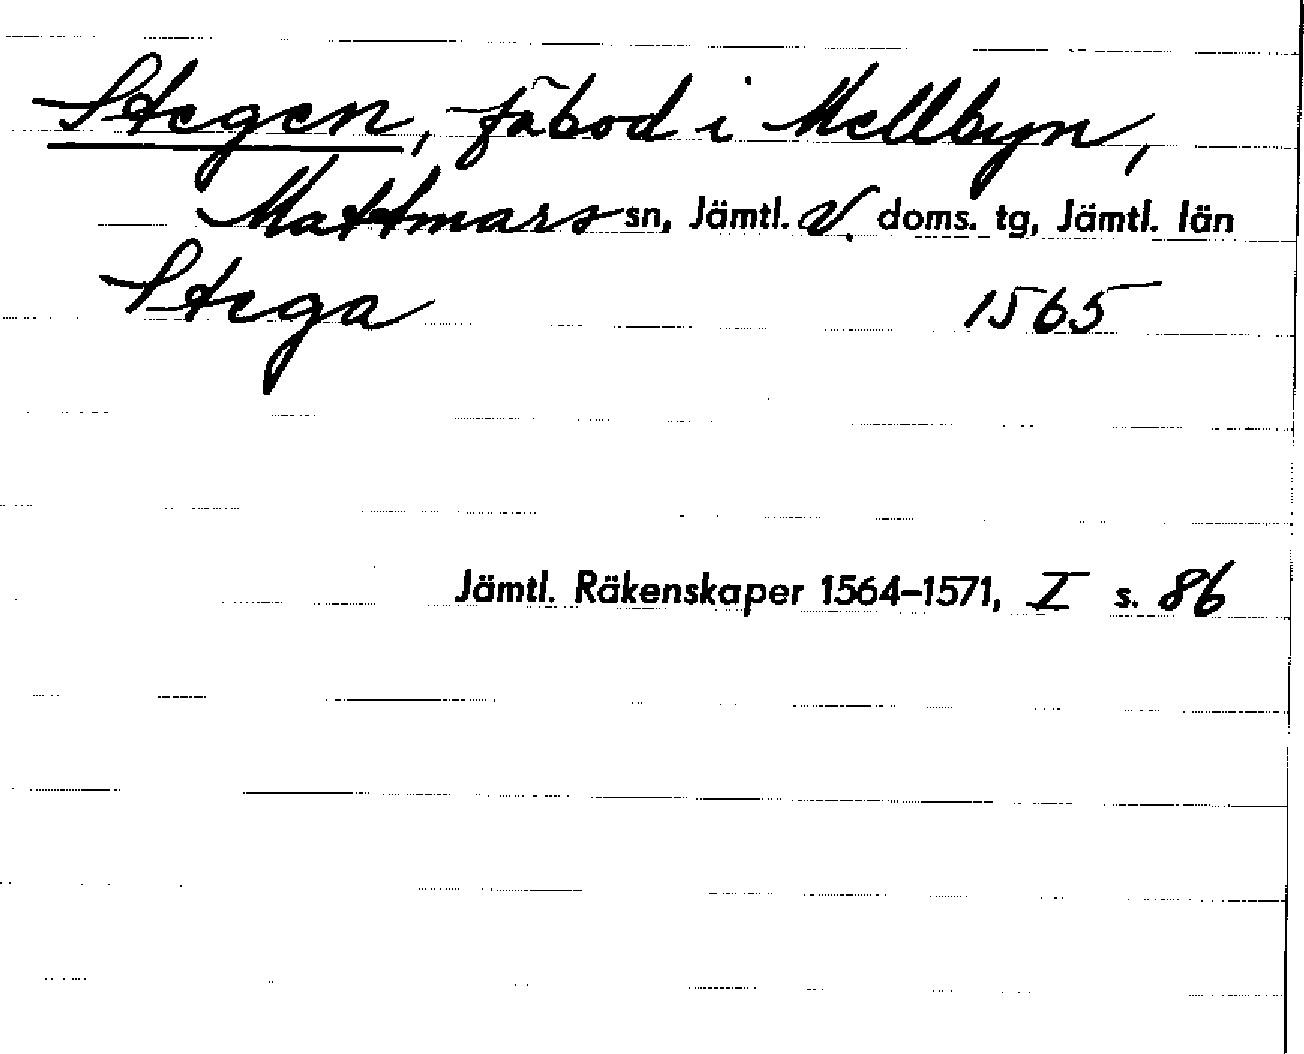 Stegen, fäbod i Mellbyn,
Mattmars sn, Jämtl. V. doms. tg, Jämtl. län
Stega 1565
Jämtl. Räkenskaper 1564-1571, I s. 86